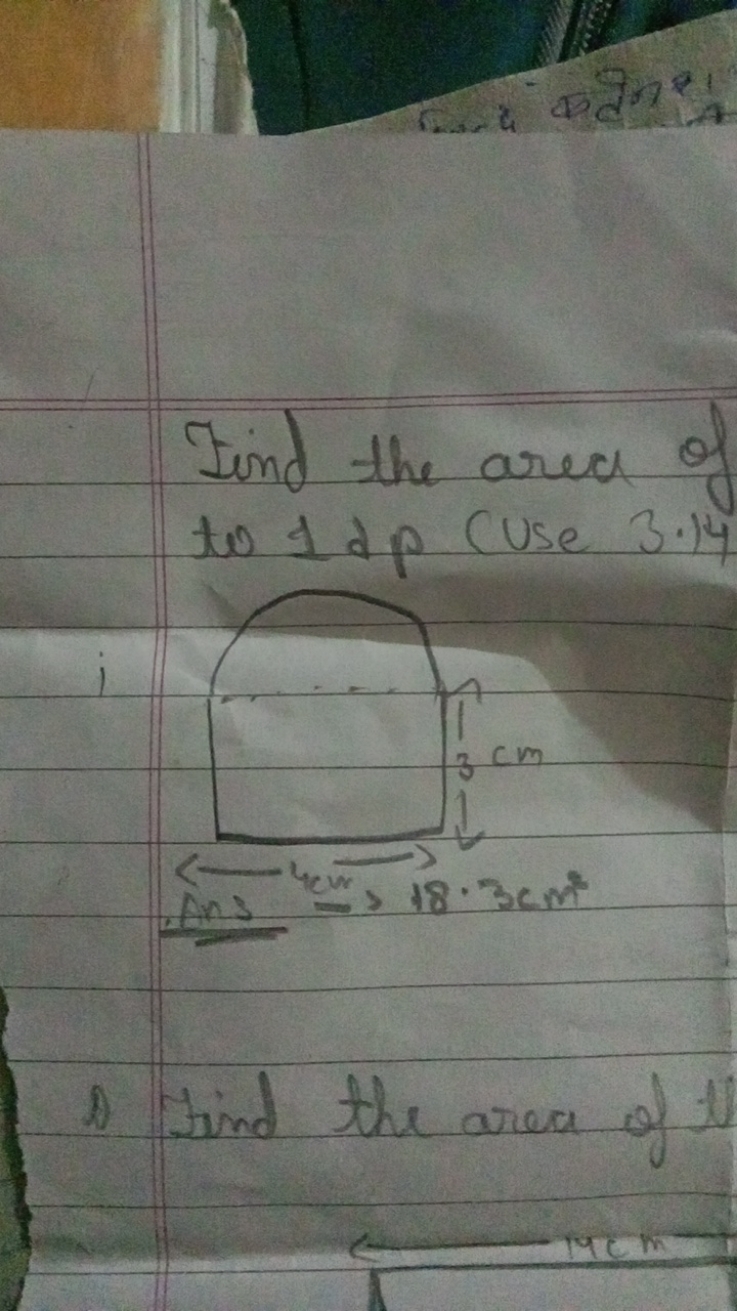 Find the area of
to 1 dp (Use 3.14
i
3 cm
4cm
Ans => 18.3cm²
Find the area of
14cm